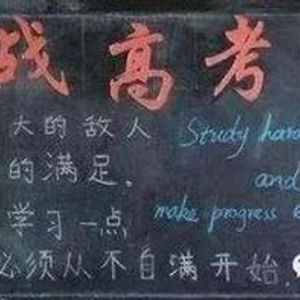 战高考
大的敌人
的满足.
学习一点
必须从不自满开始.
Study hard
and
make progress